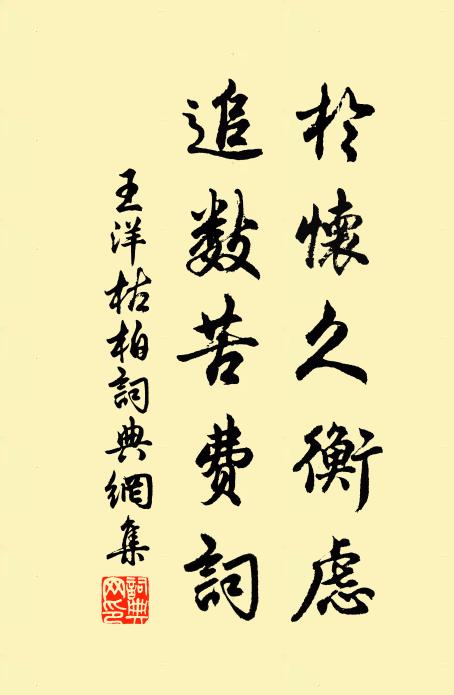 於懷久衡慮
追數苦費詞
王洋枯柏詞典網集
詞典網印